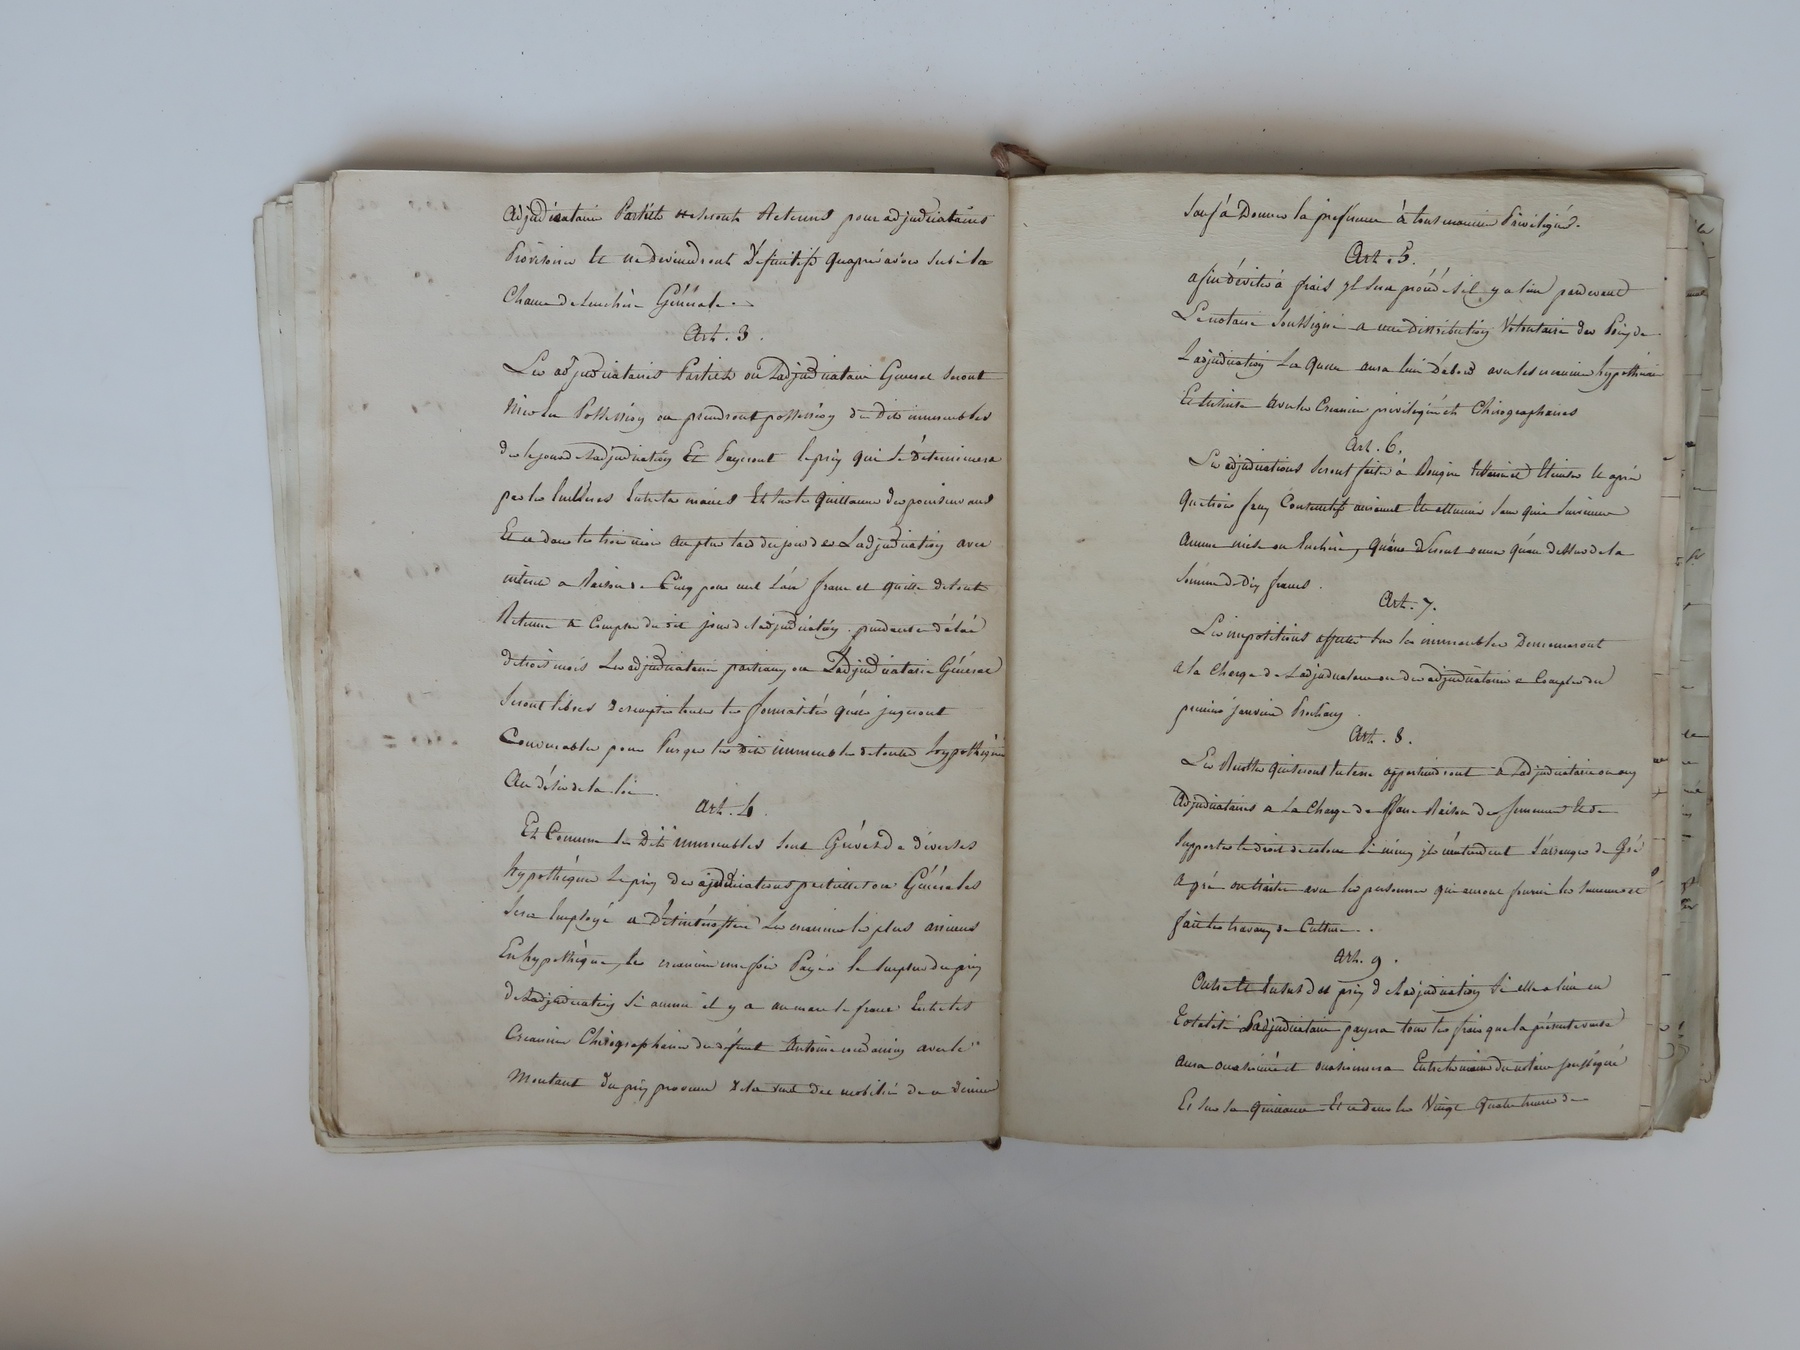 adjudicataires Partiels ne seront Retenus pour adjudicataires
Provisoires Et ne deviendront Définitifs qu'après avoir subi la
Chance de L'enchère Générale.
Art. 3.
Les adjudicataires Partiels ou L'adjudicataire General seront
mis En Possession ou prendront possession des Dits immeubles
dès le jour de L'adjudication Et Payeront le prix qui sé Déterminera
par les Enchères Entre les mains Et sur la Quittance des poursuivans
Et ce dans les trois mois au plus tard du jour de L'adjudication avec
intérêt a Raison de Cinq pour cent L'an franc et quitte de toute
Retenue a Compter du dit jour de L'adjudication. pendant ce délai
de trois mois Les adjudicataires partiaux ou L'adjudicataire Général
Seront libres de remplir toutes les formalités qu'ils jugeront
Convenables pour Purger les dits immeubles de toutes hypothèques
Au désir de la loi.
Art. 4.
Et Comme les Dits immeubles sont Grévés de diverses
hypothèques Le prix des ajudications partielles ou Générales
Sera Employé a Désintéresser Les creanciers les plus anciens
En hypothèque, les creanciers une fois Payés le Surplus du prix
de L'adjudication si aucun il y a au marc le franc Entre les
Creanciers Chirographaires du défunt Antoine avec le
Montant du prix provenu de la vente du mobilier de ce dernier
Sauf à Donner la préférence à tous creanciers Privilégiés.
Art. 5.
afin d'éviter à frais il sera procédé s'il y a lieu pardevant
Le notaire Soussigné a une distribution Volontaire des Prix de
L'adjudication La Quelle aura lieu D'abord avec les creanciers hypothécaires
Et Ensuite avec les Creanciers privilégiés et Chirographaires
Art. 6.
Les adjudications seront faites à Bougies Et après
Que trois feux Consécutifs auront Eté allumés sans qu'il survienne
Aucune mise ou Enchère, Qu'au dessus de la
Somme de Dix francs.
Art. 7.
Les impositions affectées Sur les immeubles Demeureront
a la Charge de L'adjudicataire ou des adjudicataires a Compter du
premier janvier Prochain
Art. 8.
Les Recoltes qui seront En terre appartiendront a L'adjudicataire ou aux
Adjudicataires a La Charge de faire Raison des semences Et de
Supporter le droit de colons si mieux ils n'entendent S'arranger de Gré
a gré ou traiter avec les personnes qui auront fourni les semences et
fait les travaux de Culture.
Art. 9.
Outre Et Ensus des prix de L'adjudication Si elle a lieu en
Totalité L'adjudicataire payera tous les frais que la présente vente
aura occasionné et occasionnera Entre les mains du notaire soussigné
Et sur sa Quittance Et ce dans les Vingt Quatre heures de